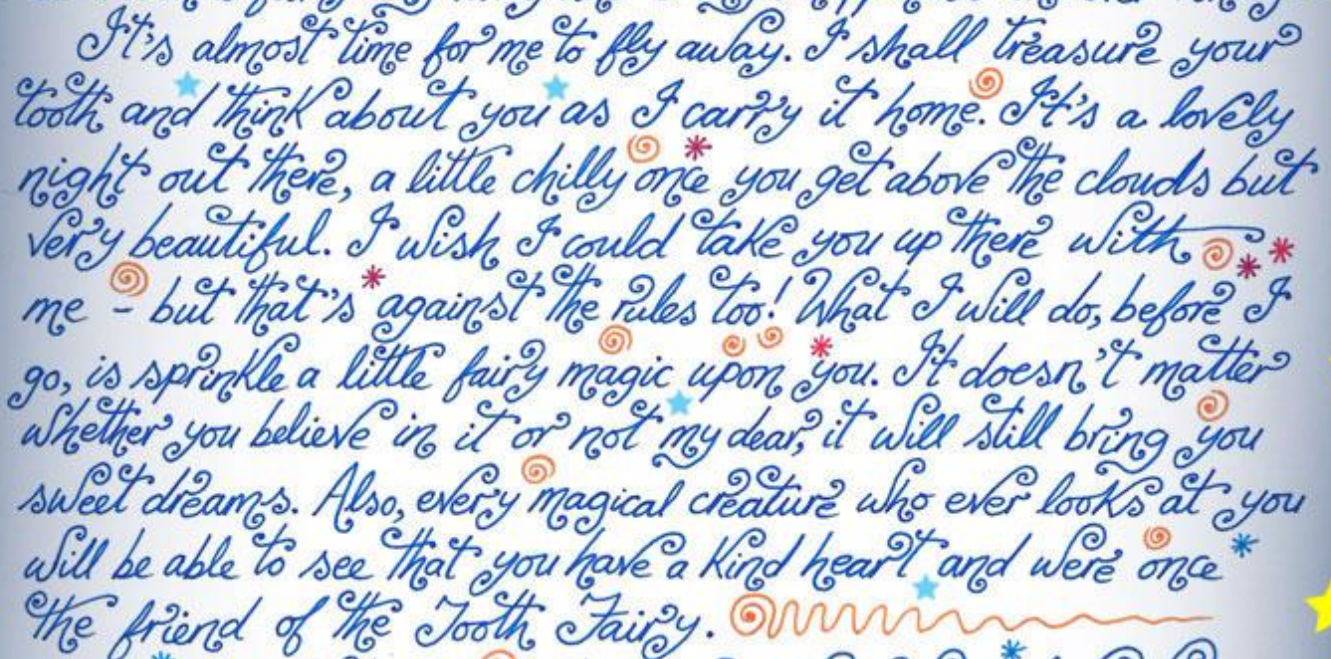 It's almost time for me to fly away. I shall treasure your
tooth and think about you as I carry it home. It's a lovely
night out there, a little chilly once you get above the clouds but
very beautiful. I wish I could take you up there with
me - but that's against the rules too! What I will do, before I
go, is sprinkle a little fairy magic upon you. It doesn't matter
whether you believe in it or not my dear, it will still bring you
sweet dreams. Also, every magical creature who ever looks at you
will be able to see that you have a kind heart and were once
the friend of the Tooth Fairy.